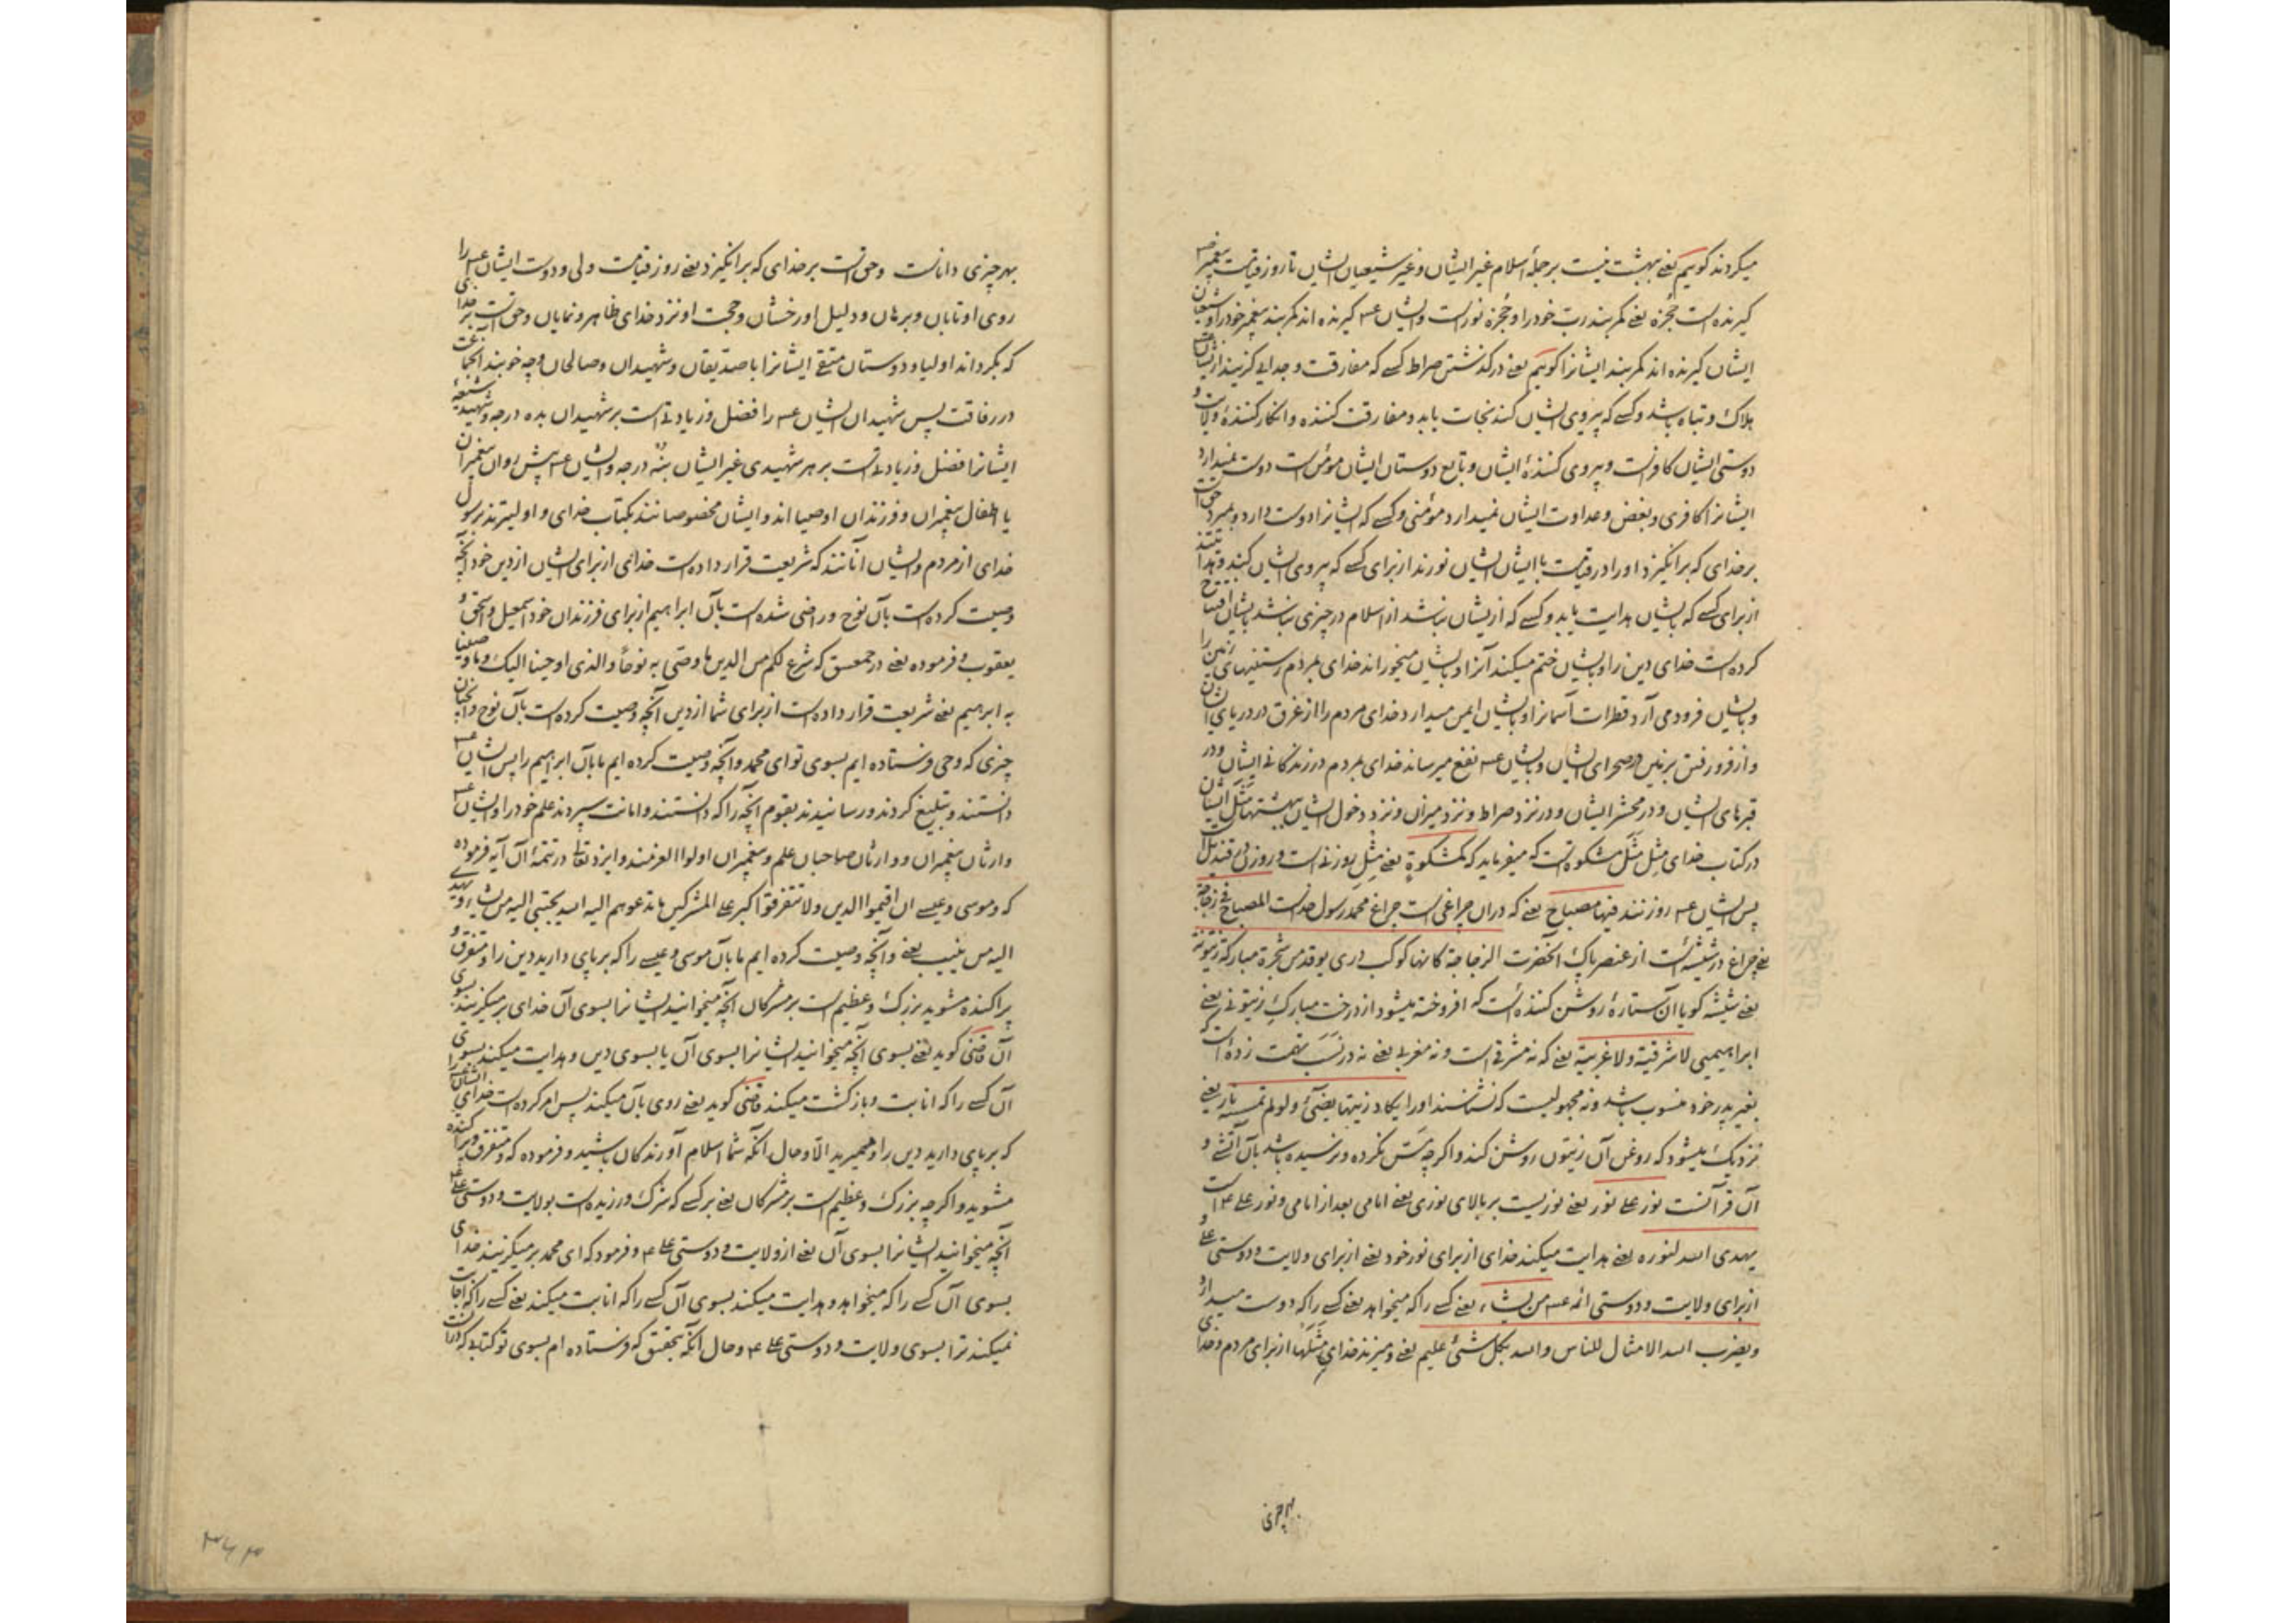 میکردند کویم یعنی بهشت نیست بر جملهٔ اسلام غیر ایشان و غیر شیعیان ایشان تا روز قیامت پیغمبر
کیرنده است حُجزه یعنی کمربند ربّ خود را و حُجزه نور است و ایشان ع‍ کیرنده اند کمربند پیغمبر خود را و شیعیان
ایشان کیرنده اند کمربند ایشانرا کویم یعنی در کذشتن صراط کسی که مفارقت و جدایی کزیند از ایشان
هلاک و تباه باشد و کسی که پیروی ایشان کند نجات یابد و مفارقت کننده و انکار کنندهٔ ولایت و
دوستی ایشان کافر است و پیروی کنندهٔ ایشان و تابع دوستان ایشان مؤمن است دوست نمیدارد
ایشانرا کافری و بغض و عداوت ایشان نمیدارد مؤمنی و کسی که ایشانرا دوست دارد و بمیرد حق است
بر خدای که برانکیزد او را در قیامت با ایشان ایشان نورند از برای کسی که پیروی ایشان کند و هدایتند
از برای کسی که بایشان هدایت یابد و کسی که از ایشان نباشد از اسلام در چیزی نباشد بایشان افتتاح
کرده است خدای دین را و بایشان ختم میکند آنرا و بایشان میخوراند خدای بمردم رستنیهای زمین را
و بایشان فرود می آرد قطرات آسمانرا و بایشان ایمن میدارد خدای مردم را از غرق در دریای ایشان
و از فرو رفتن بزمین در صحرای ایشان و بایشان ع‍ نفع میرساند خدای بمردم در زندکانی ایشان و در
قبرهای ایشان و در محشر ایشان و در نزد صراط و نزد میزان و نزد دخول ایشان بهشتها مَثَل ایشان
در کتاب خدای مِثل مَثَل مشکوة است که میفرماید که کمشکوةٍ یعنی مِثل روزنی است و روزن در قندیل است
پس ایشان ع‍ روزنند فیها مصباح یعنی که در آن چراغی است چراغ محمّد رسول خداست المصباح فی زجاجة
یعنی چراغ در شیشه است از عنصر پاک آنحضرت الزجاجة کانها کوکب دری یوقد من شجرة مبارکة زیتونة
یعنی شیشه کویا آن ستارهٔ روشن کننده است که افروخته میشود از درخت مبارکِ زیتونی یعنی
ابراهیمی لا شرقیة و لا غربیة یعنی که نه مشرقی است و نه مغربی یعنی نه در نَسَب تهمت زده است که
بغیر پدر خود منسوب باشد و نه مجهولیست که نشناسند او را یکاد زیتها یضیٔ و لو لم تمسسه نار یعنی
نزدیک میشود که روغن آن زیتون روشن کند و اکر چه مَسّ نکرده و نرسیده باشد بآن آتشی و
آن قرآنست نور علی نور یعنی نوریست بر بالای نوری یعنی امامی بعد از امامی و نور علی ۴ است
یهدی الله لنوره یعنی هدایت میکند خدای از برای نور خود یعنی از برای ولایت و دوستی علی و
از برای ولایت و دوستی ائمه ع‍ من یشاء یعنی کسی را که میخواهد یعنی کسی را که دوست میدارد
و یضرب الله الامثال للناس و الله بکل شیٔ علیم یعنی و میزند خدای مَثَلها از برای مردم و خدای
بهر چیزی
بهر چیزی داناست و حق است بر خدای که برانکیزد یعنی روز قیامت ولی و دوست ایشان ع‍ را
روی او تابان و برهان و دلیل او رخشان و حجت او نزد خدای ظاهر و نمایان و حق است بر خدا
که بکرداند اولیا و دوستان متقی ایشانرا با صدیقان و شهیدان و صالحان و چه خوبند آنجماعت
در رفاقت پس شهیدان ایشان ع‍ را فضل و زیادتی است بر شهیدان بده درجه و شهید شیعهٔ
ایشانرا فضل و زیادتی است بر هر شهیدی غیر ایشان بنُه درجه و ایشان ع‍ پیش روان پیغمبران
یا اطفال پیغمبران و فرزندان اوصیا اند و ایشان مخصوصانند بکتاب خدای و اولیترند برسول
خدای از مردم و ایشان آنانند که شریعت قرار داده است خدای از برای ایشان از دین خود آنچه
وصیت کرده است بآن نوح و راضی شده است بآن ابراهیم از برای فرزندان خود اسمعیل و اسحق و
یعقوب و فرموده یعنی در حمعسق که شرع لکم من الدین ما وصّی به نوحاً و الذی اوحینا الیک و ما وصینا
به ابرهیم یعنی شریعت قرار داده است از برای شما از دین آنچه وصیت کرده است بآن نوح و آنچنان
چیزی که وحی فرستاده ایم بسوی تو ای محمد و آنچه وصیت کرده ایم ما بآن ابراهیم را پس ایشان ع‍
دانستند و تبلیغ کردند و رسانیدند بقوم آنچه را که دانستند و امانت سپردند علم خود را و ایشان ع‍
وارثان پیغمبران و وارثان صاحبان علم و پیغمبران اولوا العزمند و ایزد تعالی در تتمهٔ آن آیه فرموده
که و موسی و عیسی ان اقیموا الدین و لا تتفرقوا کبر علی المشرکین ما تدعوهم الیه الله یجتبی الیه من یشاء و یهدی
الیه من ینیب یعنی و آنچه وصیت کرده ایم ما بآن موسی و عیسی را که بر پای دارید دین را و متفرق و
پراکنده مشوید بزرک و عظیم است بر مشرکان آنچه میخوانید ایشانرا بسوی آن خدای بر میکزیند بسوی
آن قاضی کوید یعنی بسوی آنچه میخوانید ایشانرا بسوی آن یا بسوی دین و هدایت میکند بسوی
آن کسی را که انابت و بازکشت میکند قاضی کوید یعنی روی بآن میکند پس امر کرده است خدای ایشانرا
که بر پای دارید دین را و نمیرید الّا و حال آنکه شما اسلام آورندکان باشید و فرموده که متفرق و پراکنده
مشوید و اکر چه بزرک و عظیم است بر مشرکان یعنی بر کسی که شرک ورزیده است بولایت و دوستی علی ۴
آنچه میخوانید ایشانرا بسوی آن یعنی از ولایت و دوستی علی ۴ و فرمود که ای محمد بر میکزیند خدای
بسوی آن کسی را که میخواهد و هدایت میکند بسوی آن کسی را که انابت میکند یعنی کسی را که اجابت
نمیکند ترا بسوی ولایت و دوستی علی ۴ و حال آنکه بتحقیق که فرستاده ام بسوی تو کتابی که در آن